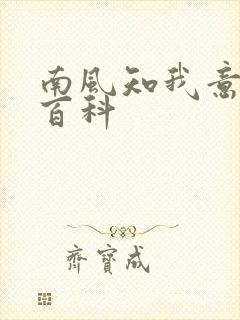 南風知我意
百科
齊寶成